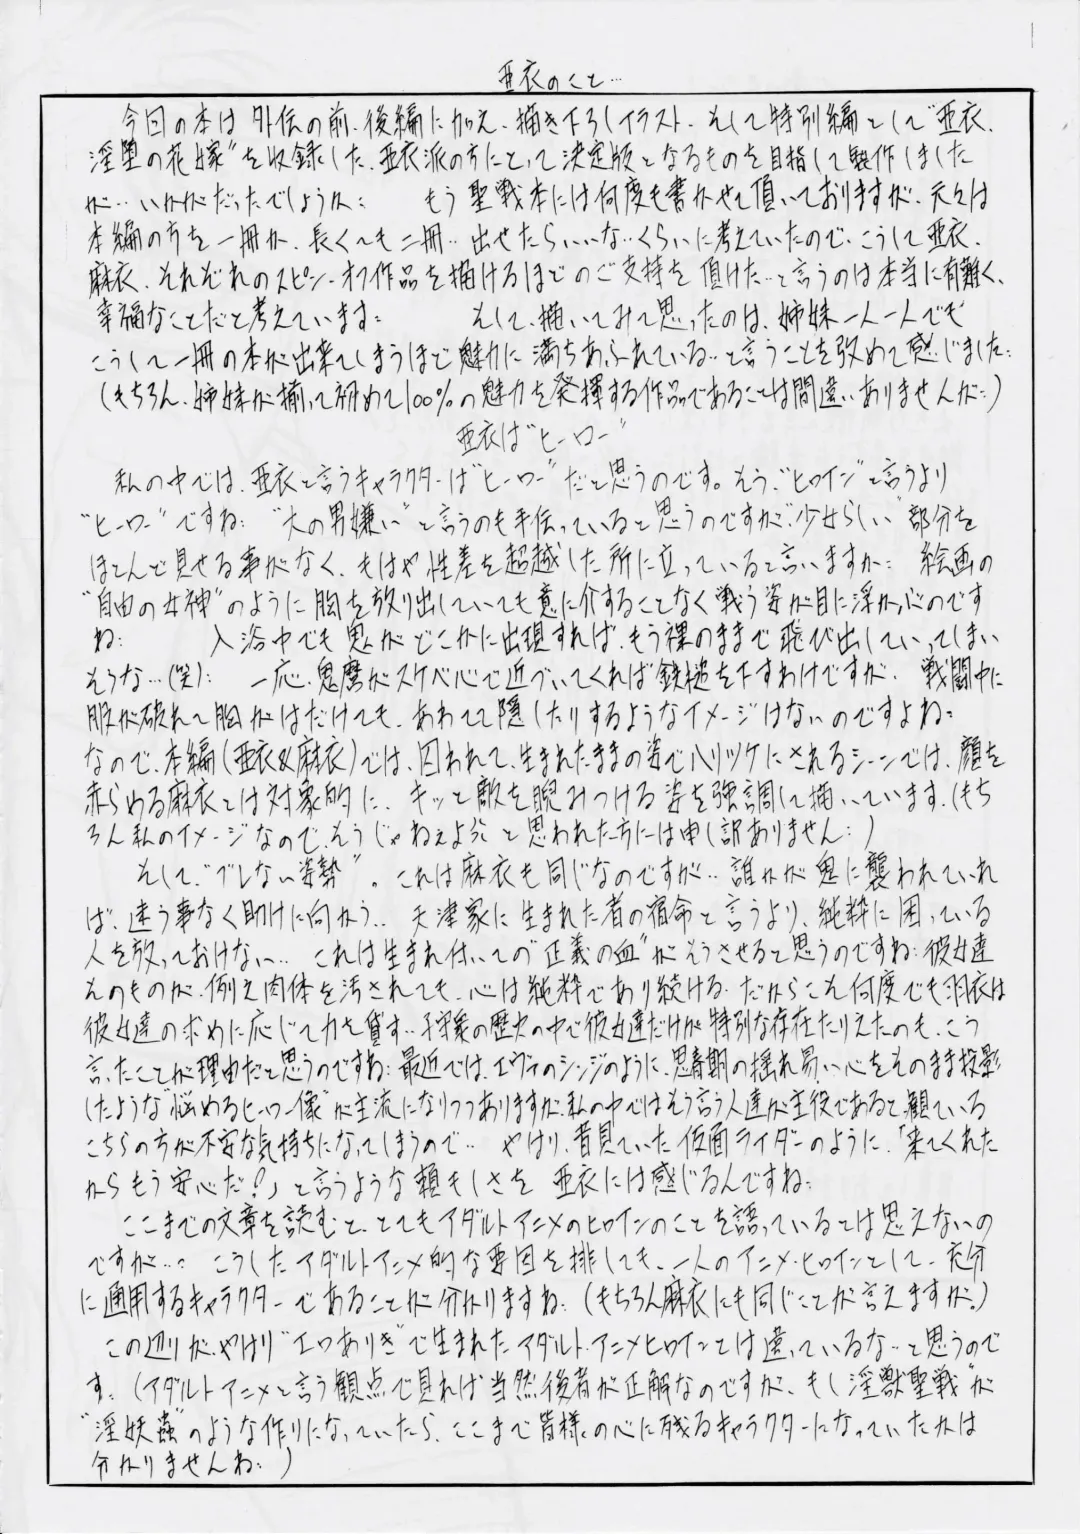 亜衣のこと…
今回の本は外伝の前、後編に加え、描き下ろしイラスト、そして特別編として"亜衣、
淫堕の花嫁"を収録した、亜衣派の方にとって決定版となるものを目指して製作しました
が‥いかがだったでしょうか: もう聖戦本には何度も書かせて頂いておりますが、元々は
本編の方を一冊か、長くても二冊‥出せたらいいな‥くらいに考えていたので、こうして亜衣、
麻衣、それぞれのスピン・オフ作品を描けるほどのご支持を頂けた‥と言うのは本当に有難く、
幸福なことだと考えています: そして、描いてみて思ったのは、姉妹一人一人でも
こうして一冊の本が出来てしまうほど魅力に満ちあふれている‥と言うことを改めて感じました:
(もちろん、姉妹が揃って初めて100%の魅力を発揮する作品であることは間違いありませんが:)
亜衣は"ヒーロー"
私の中では、亜衣と言うキャラクターは"ヒーロー"だと思うのです。そう、"ヒロイン"と言うより
"ヒーロー"ですね: "大の男嫌い"と言うのも手伝っていると思うのですが、"少女らしい"部分を
ほとんど見せる事がなく、もはや性差を超越した所に立っていると言いますか: 絵画の
"自由の女神"のように胸を放り出していても意に介することなく戦う姿が目に浮かぶのです
ね: 入浴中でも鬼がどこかに出現すれば、もう裸のままで飛び出していってしまい
そうな…(笑): 一応、鬼麿がスケベ心で近づいてくれば鉄槌を下すわけですが、戦闘中に
服が破れて胸がはだけても、あわてて隠したりするようなイメージはないのですよね:
なので、本編(亜衣&麻衣)では、囚われて、生まれたままの姿でハリツケにされるシーンでは、顔を
赤らめる麻衣とは対象的に、キッと敵を睨みつける姿を強調して描いています。(もち
ろん私のイメージなので、そうじゃねぇよ!と思われた方には申し訳ありません:)
そして、"ブレない姿勢"。これは麻衣も同じなのですが‥誰かが鬼に襲われていれ
ば、迷う事なく助けに向かう‥天津家に生まれた者の宿命と言うより、純粋に困っている
人を放っておけない‥これは生まれ付いての"正義の血"がそうさせると思うのですね:彼女達
そのものが、例え肉体を汚されても、心は純粋であり続ける、だからこそ何度でも羽衣は
彼女達の求めに応じて力を貸す‥子守衆の歴史の中で彼女達だけが特別な存在たりえたのも、こう
言ったことが理由だと思うのですね:最近では、エヴァのシンジのように、思春期の揺れ易い心をそのまま投影
したような"悩めるヒーロー像"が主流になりつつありますが、私の中ではそう言う人達が主役であると、観ている
こちらの方が不安な気持ちになってしまうので‥ やはり、昔見ていた仮面ライダーのように、「来てくれた
からもう安心だ!」と言うような頼もしさを亜衣には感じるんですね:
ここまでの文章を読むと、とてもアダルトアニメのヒロインのことを語っているとは思えないの
ですが‥: こうしたアダルトアニメ的な要因を排しても、一人のアニメ・ヒロインとして、充分
に通用するキャラクターであることが分かりますね:(もちろん麻衣にも同じことが言えますが。)
この辺りが、やはり"エロありき"で生まれたアダルト・アニメヒロインとは違っているな‥と思うので
す。(アダルトアニメと言う観点で見れば当然後者が正解なのですが、もし"淫獣聖戦"が
"淫妖蟲"のような作りになっていたら、ここまで皆様の心に残るキャラクターになっていたかは
分かりませんね:)